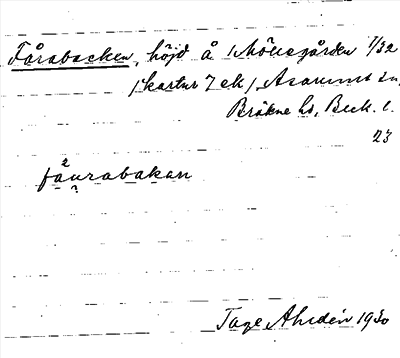 Fårabacken, höjd å Möllegården 7/32
/kartur 7 ek/, Asarums sn,
Bräkne hd, Blek. l.
23
fåurabakan
2
Tage Ahldén 1930